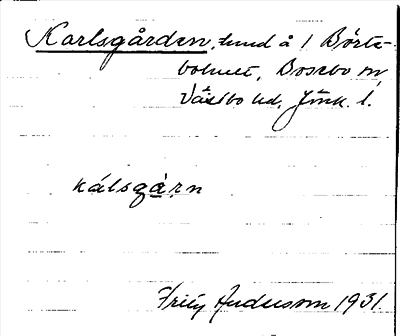 Karlsgården, hund å 1 Börts-
bohult, Bosebo sn,
Västbo hd, Jönk. l.
kálsgàrn
Fritz Anderson 1931.